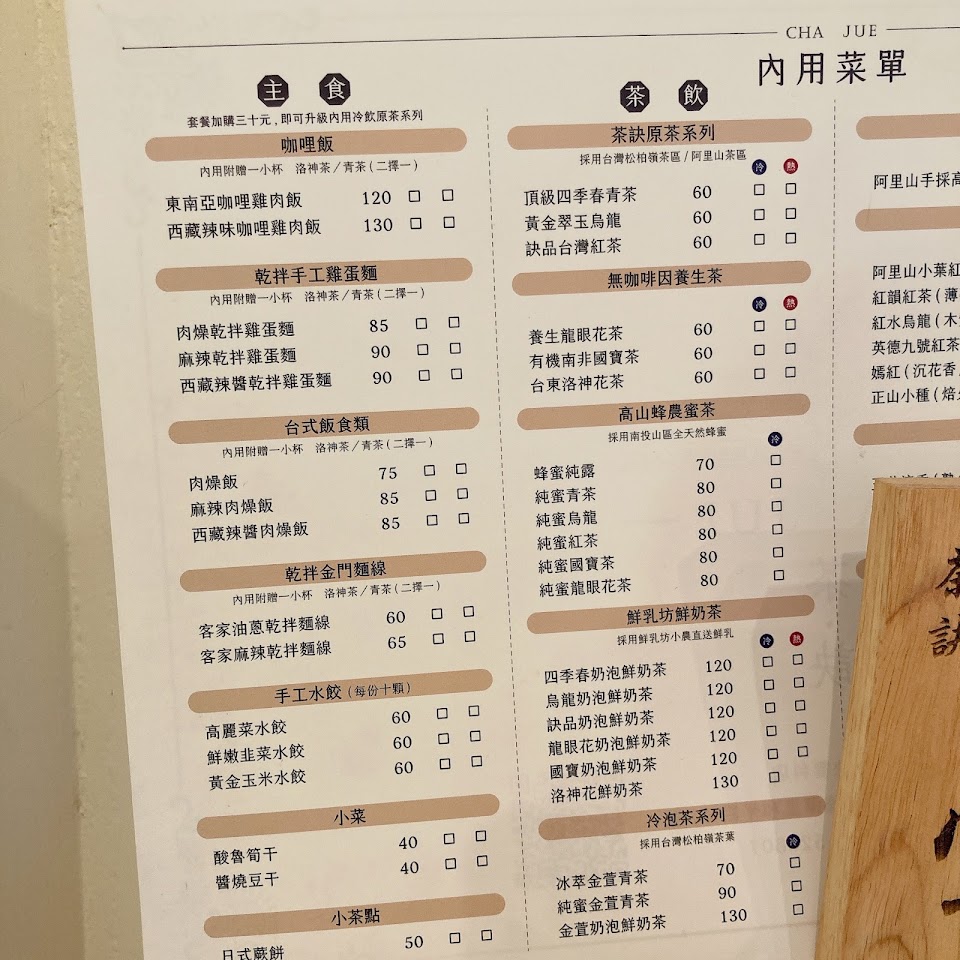 CHA JUE
內用菜單
主食
套餐加購三十元，即可升級內用冷飲原茶系列
咖哩飯
內用附贈一小杯 洛神茶／青茶(二擇一)
東南亞咖哩雞肉飯 120 □ □
西藏辣味咖哩雞肉飯 130 □ □
乾拌手工雞蛋麵
內用附贈一小杯 洛神茶／青茶(二擇一)
肉燥乾拌雞蛋麵 85 □ □
麻辣乾拌雞蛋麵 90 □ □
西藏辣醬乾拌雞蛋麵 90 □ □
台式飯食類
內用附贈一小杯 洛神茶／青茶(二擇一)
肉燥飯 75 □ □
麻辣肉燥飯 85 □ □
西藏辣醬肉燥飯 85 □ □
乾拌金門麵線
內用附贈一小杯 洛神茶／青茶(二擇一)
客家油蔥乾拌麵線 60 □ □
客家麻辣乾拌麵線 65 □ □
手工水餃(每份十顆)
高麗菜水餃 60 □ □
鮮嫩韭菜水餃 60 □ □
黃金玉米水餃 60 □ □
小菜
酸魯筍干 40 □ □
醬燒豆干 40 □ □
小茶點
日式蕨餅 50 □ □
茶飲
茶訣原茶系列
採用台灣松柏嶺茶區/阿里山茶區
冷 熱
頂級四季春青茶 60 □ □
黃金翠玉烏龍 60 □ □
訣品台灣紅茶 60 □ □
無咖啡因養生茶
冷 熱
養生龍眼花茶 60 □ □
有機南非國寶茶 60 □ □
台東洛神花茶 60 □ □
高山蜂農蜜茶
採用南投山區全天然蜂蜜
冷
蜂蜜純露 70 □
純蜜青茶 80 □
純蜜烏龍 80 □
純蜜紅茶 80 □
純蜜國寶茶 80 □
純蜜龍眼花茶 80 □
鮮乳坊鮮奶茶
採用鮮乳坊小農直送鮮乳
冷 熱
四季春奶泡鮮奶茶 120 □ □
烏龍奶泡鮮奶茶 120 □ □
訣品奶泡鮮奶茶 120 □ □
龍眼花奶泡鮮奶茶 120 □ □
國寶奶泡鮮奶茶 120 □ □
洛神花鮮奶茶 130 □
冷泡茶系列
採用台灣松柏嶺茶葉
冷
冰萃金萱青茶 70 □
純蜜金萱青茶 90 □
金萱奶泡鮮奶茶 130 □
阿里山手採高
阿里山小葉紅
紅韻紅茶(薄
紅水烏龍(木
英德九號紅茶
嫣紅(沉花香
正山小種(焙
茶訣